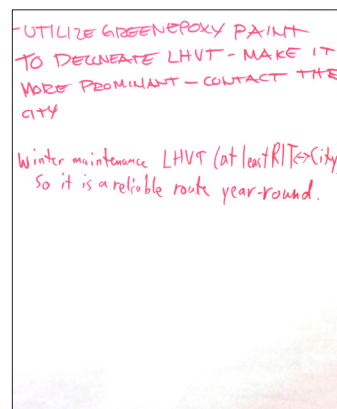 - UTILIZE GREEN EPOXY PAINT
TO DELINEATE LHVT - MAKE IT
MORE PROMINANT - CONTACT THE
CITY
Winter maintenance LHVT (at least RIT↔City)
So it is a reliable route year-round.